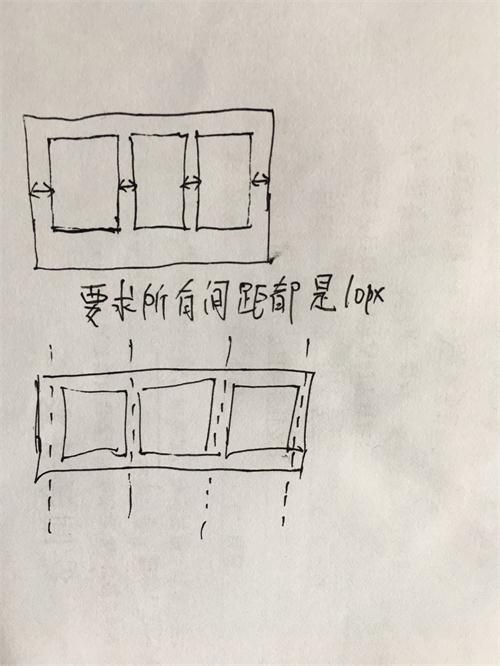 要求所有间距都是10px